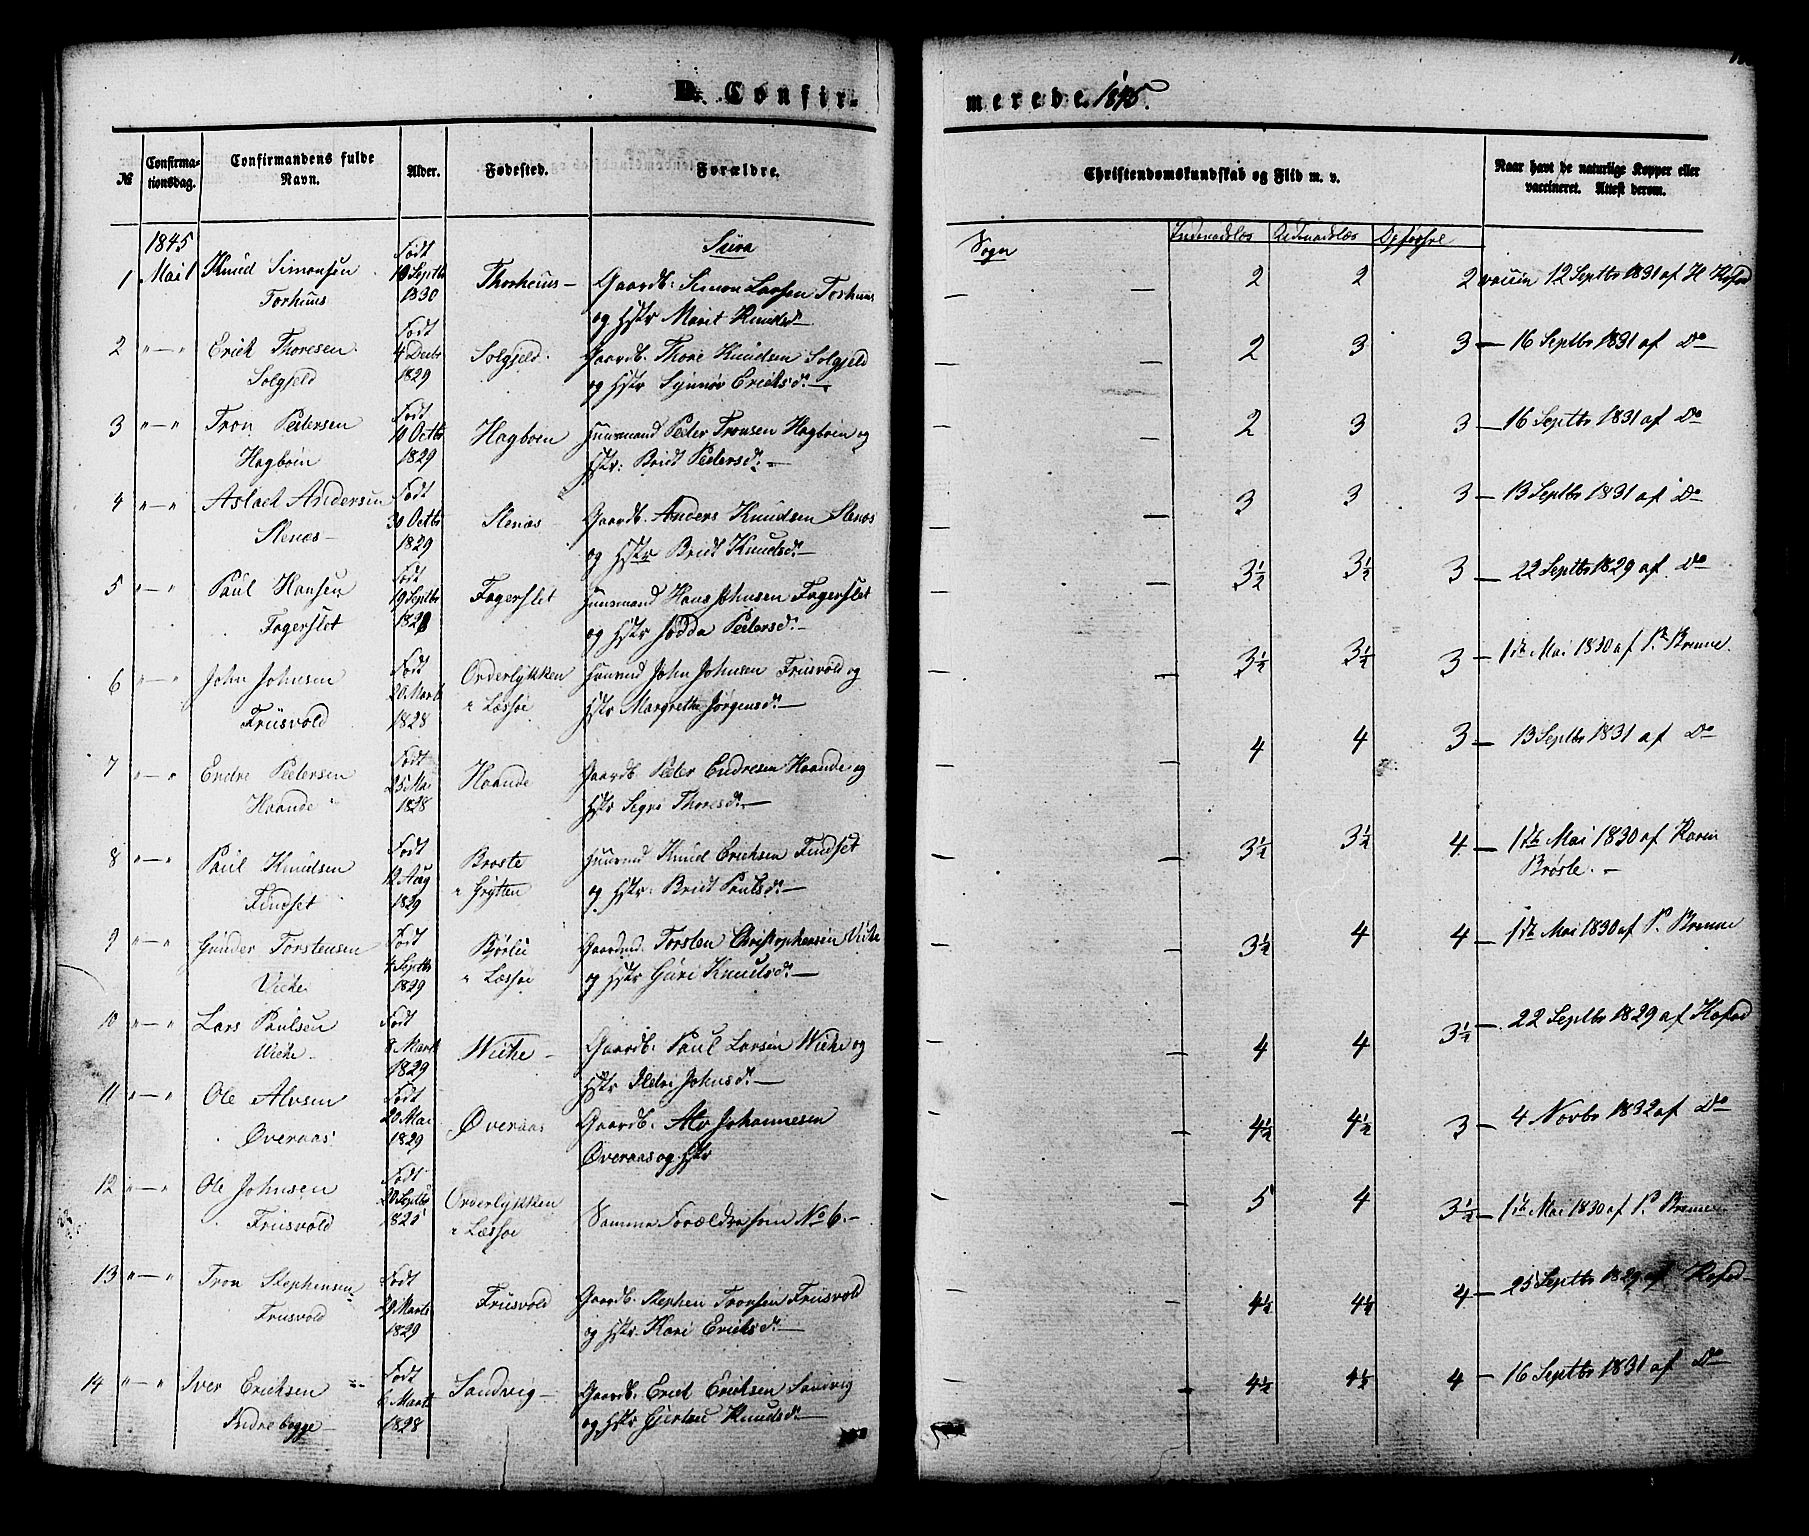 D. Confir-
merede. 1845.
№
Confirma-
tionsdag.
Confirmandens fulde
Navn.
Alder.
Fødested.
Forældre.
Christendomskundskab og Flid m. v.
Naar havt de naturlige Kopper eller
vaccineret. Attest derom.
Sogn
1845
1 Mai 1 Knud Simonsen
Torhuus
Født
Septbr
1830
Thorhuus
Gaardb: Simon Larsen Torhuus
og Hstr Marit Knudsdr
2 2 2 vaccin 12 Septbr 1831 af H Hofod
2 " — " Erick Thoresen
Solgjeld
Født
4 Decbr
1829
Solgjeld
Gaardb. Thore Knudsen Solgjeld
og Hstr Synnør Ericksdr
2 3 3 16 Septbr 1831 af Do
3 " — " Tron Pedersen
Hagbøen
Født
Octbr
1829
Hagbøen
Huusmand Peder Tronsen Hagbøen og
Hstr: Bridt Pedersdr
2 3 3 16 Septbr 1831 af Do
4 " — " Aslack Andersen
Stenæs
Født
30 Octbr
1829
Stenæs
Gaardb. Anders Knudsen Stenæs
og Hstr Bridt Knudsdr
3 3 3 13 Septbr 1831 af Do
5 " — " Paul Hansen
Fagerslet
Født
19 Septbr
1828
Fagerslet
Huusmand Hans Johnsen Fagerslet
og Hstr Jødda Pedersdr
3½ 3½ 3 22 Septbr 1829 af Do
6 " — " John Johnsen
Friisvold
Født
20 Marts
1828
Orderlykken
i Læssøe
John Johnsen Friisvold og
Hstr Margrethe Jørgensdr
3½ 3½ 3 1ste Mai 1830 af P. Brenne.
7 " — " Endre Pedersen
Haande
Født
25 Mai
1828
Haande
Gaardb Peder Endresen Haande og
Hstr Segri Thoresdr
4 4 3 13 Septbr 1831 af Do
8 " — " Paul Knudsen
Findset
Født
12 Aug
1829
Brøste
i Grytten
Knud Ericksen Findset
og Hstr: Bridt Paulsdr
3½ 3½ 4 1ste Mai 1830 af Karen
Brøste.
9 " — " Gunder Torstensen
Viche
Født
4 Septbr
1829
Børlii
i Læssøe
Torsten Christophersen Viche
og Hstr Guri Knudsdr
3½ 4 4 1ste Mai 1830 af P. Brenne
10 " — " Lars Paulsen
Wiche
Født
9 Marts
1829
Wiche
Gaardb: Paul Larsen Wiche og
Hstr Ildri Johnsdr
4 4 3½ 22 Septbr 1829 af Hofod
11 " — " Ole Alvsen
Øveraas
Født
20 Mai
1829
Øveraas
Gaardb: Alv Johannesen
Øveraas og Hstr
4½ 4½ 3 4 Novbr 1832 af Do
12 " — " Ole Johnsen
Friisvold
Født
20 Septbr
1825
Orderlykken
i Læssøe
Samme Forældre som No 6.
5 4 3½ 1ste Mai 1830 af P. Brenne
13 " — " Tron Stephensen
Friisvold
Født
29 Marts
1829
Friisvold
Gaardb: Stephen Tronsen Friisvold
og Hstr. Kari Ericksdr
4½ 4½ 4 25 Septbr 1829 af Hofod
14 " — " Iver Ericksen
Indrebygge
Født
6 Marts
1828
Sandvig
Gaardb: Erick Ericksen Sandvig
og Hstr Gjertru Knudsdr
4½ 4½ 4 16 Septbr 1831 af Do